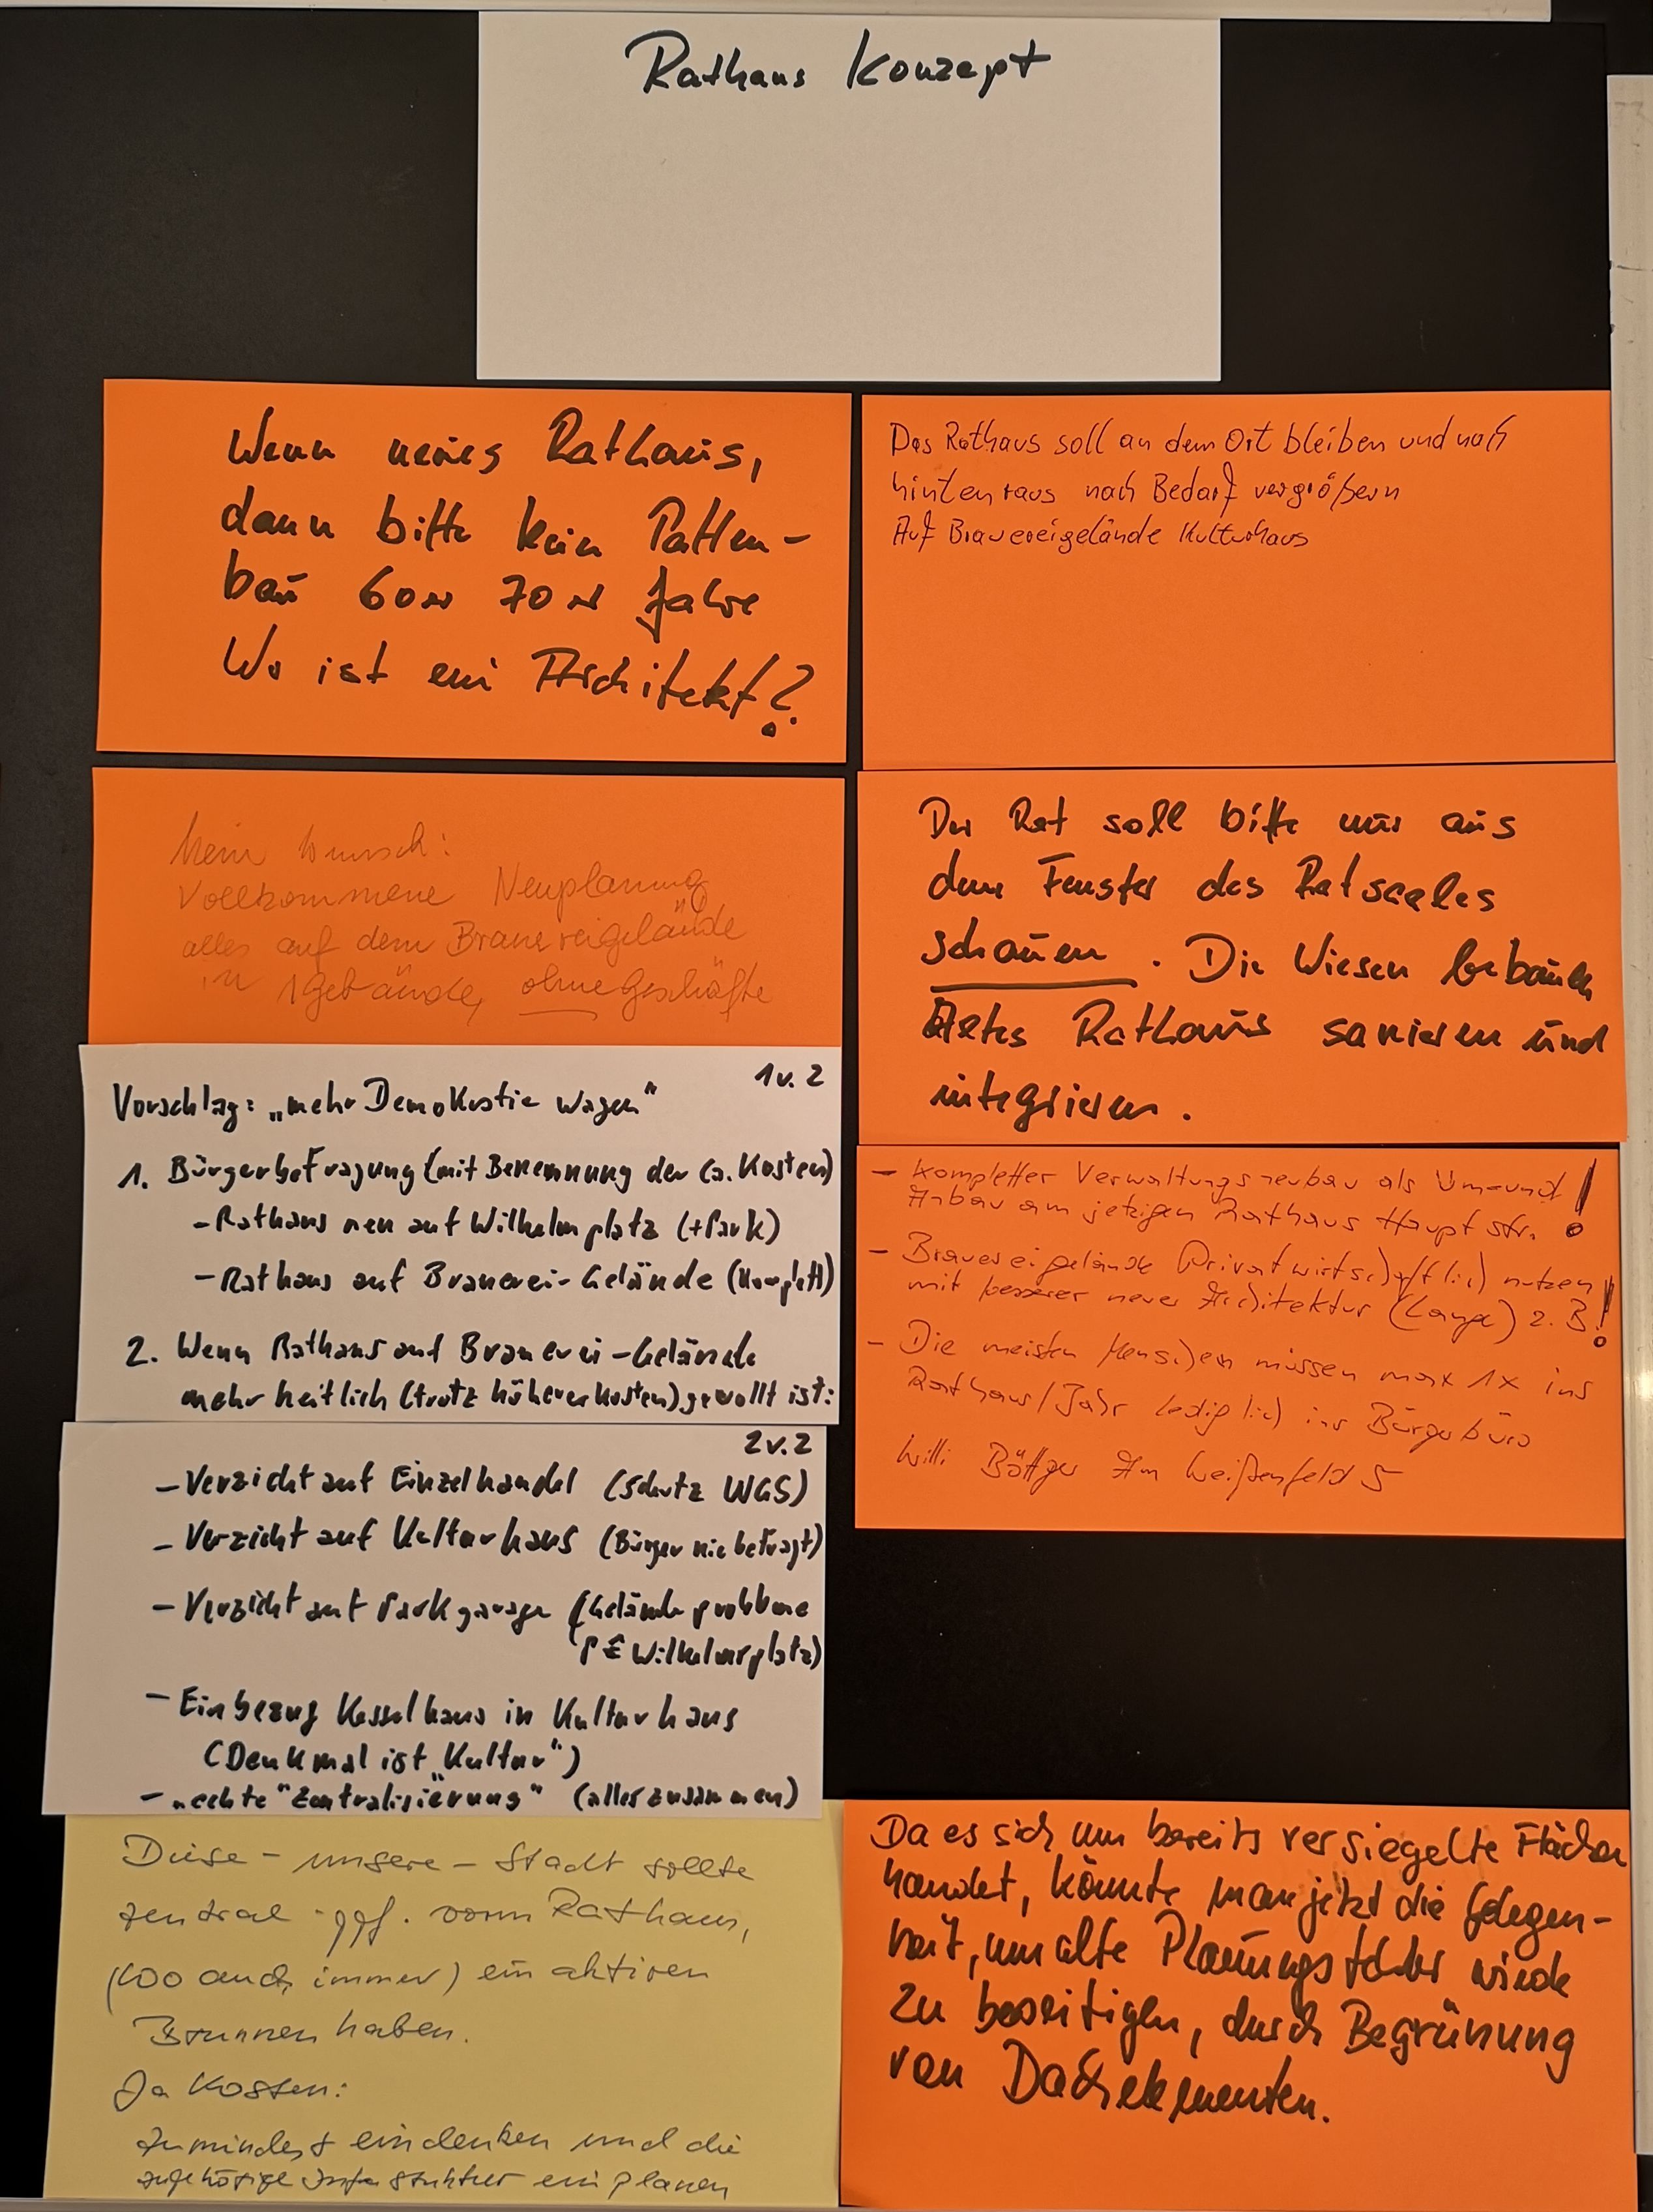 Rathaus Konzept
Wenn neues Rathaus,
dann bitte kein Patten-
bau 60er 70er Jahre
Wo ist ein Architekt?
Das Rathaus soll an dem Ort bleiben und nach
hinten raus nach Bedarf vergrößern
Auf Brauereigelände Kulturhaus
Mein Wunsch:
Vollkommene Neuplanung
alles auf dem Brauereigelände
in 1 Gebäude, ohne Geschäfte
Der Rat soll bitte nur aus
dem Fenster des Ratsaales
schauen. Die Wiesen bebauen
Altes Rathaus sanieren und
integrieren.
1 v. 2
Vorschlag: „mehr Demokratie wagen“
1. Bürgerbefragung (mit Benennung der ca. Kosten)
- Rathaus neu auf Wilhelmplatz (+Park)
- Rathaus auf Brauerei-Gelände (komplett)
2. Wenn Rathaus auf Brauerei-Gelände
mehrheitlich (trotz höherer Kosten) gewollt ist:
- Kompletter Verwaltungsneubau als Um- und !
Anbau am jetzigen Rathaus Hauptstr.
- Brauereigelände Privatwirtschaftlich nutzen
mit besserer neuer Architektur (Lange) z.B.!
- Die meisten Menschen müssen max 1x ins
Rathaus/Jahr lediglich ins Bürgerbüro
Willi Böttger Am Weißenfeld 5
2 v. 2
- Verzicht auf Einzelhandel (Schutz WGS)
- Verzicht auf Kulturhaus (Bürger nie befragt)
- Verzicht auf Parkgarage (Geländeprobleme
P Wilhelmsplatz)
- Einbezug Kesselhaus in Kulturhaus
(Denkmal ist „Kultur“)
- „echte "Zentralisierung" (alles zusammen)
Diese - unsere - Stadt sollte
zentral - ggf. vorm Rathaus,
(wo auch immer) ein aktiven
Brunnen haben.
Ja Kosten:
Zumindest eindenken und die
zugehörige Infrastruktur einplanen
Da es sich um bereits versiegelte Flächen
handet, könnte man jetzt die Gelegen-
heit, um alte Planungsfehler wieder
zu beseitigen, durch Begrünung
von Dachelementen.